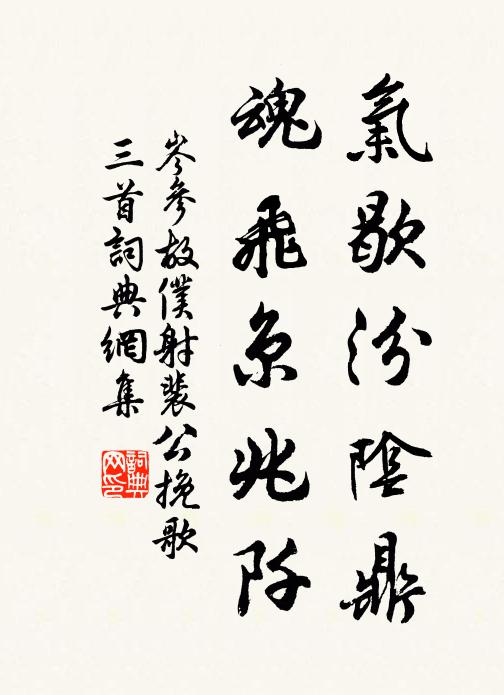 氣歇汾陰鼎
魂飛京兆阡
岑參故僕射裴公挽歌
三首詞典網集
詞典
网印